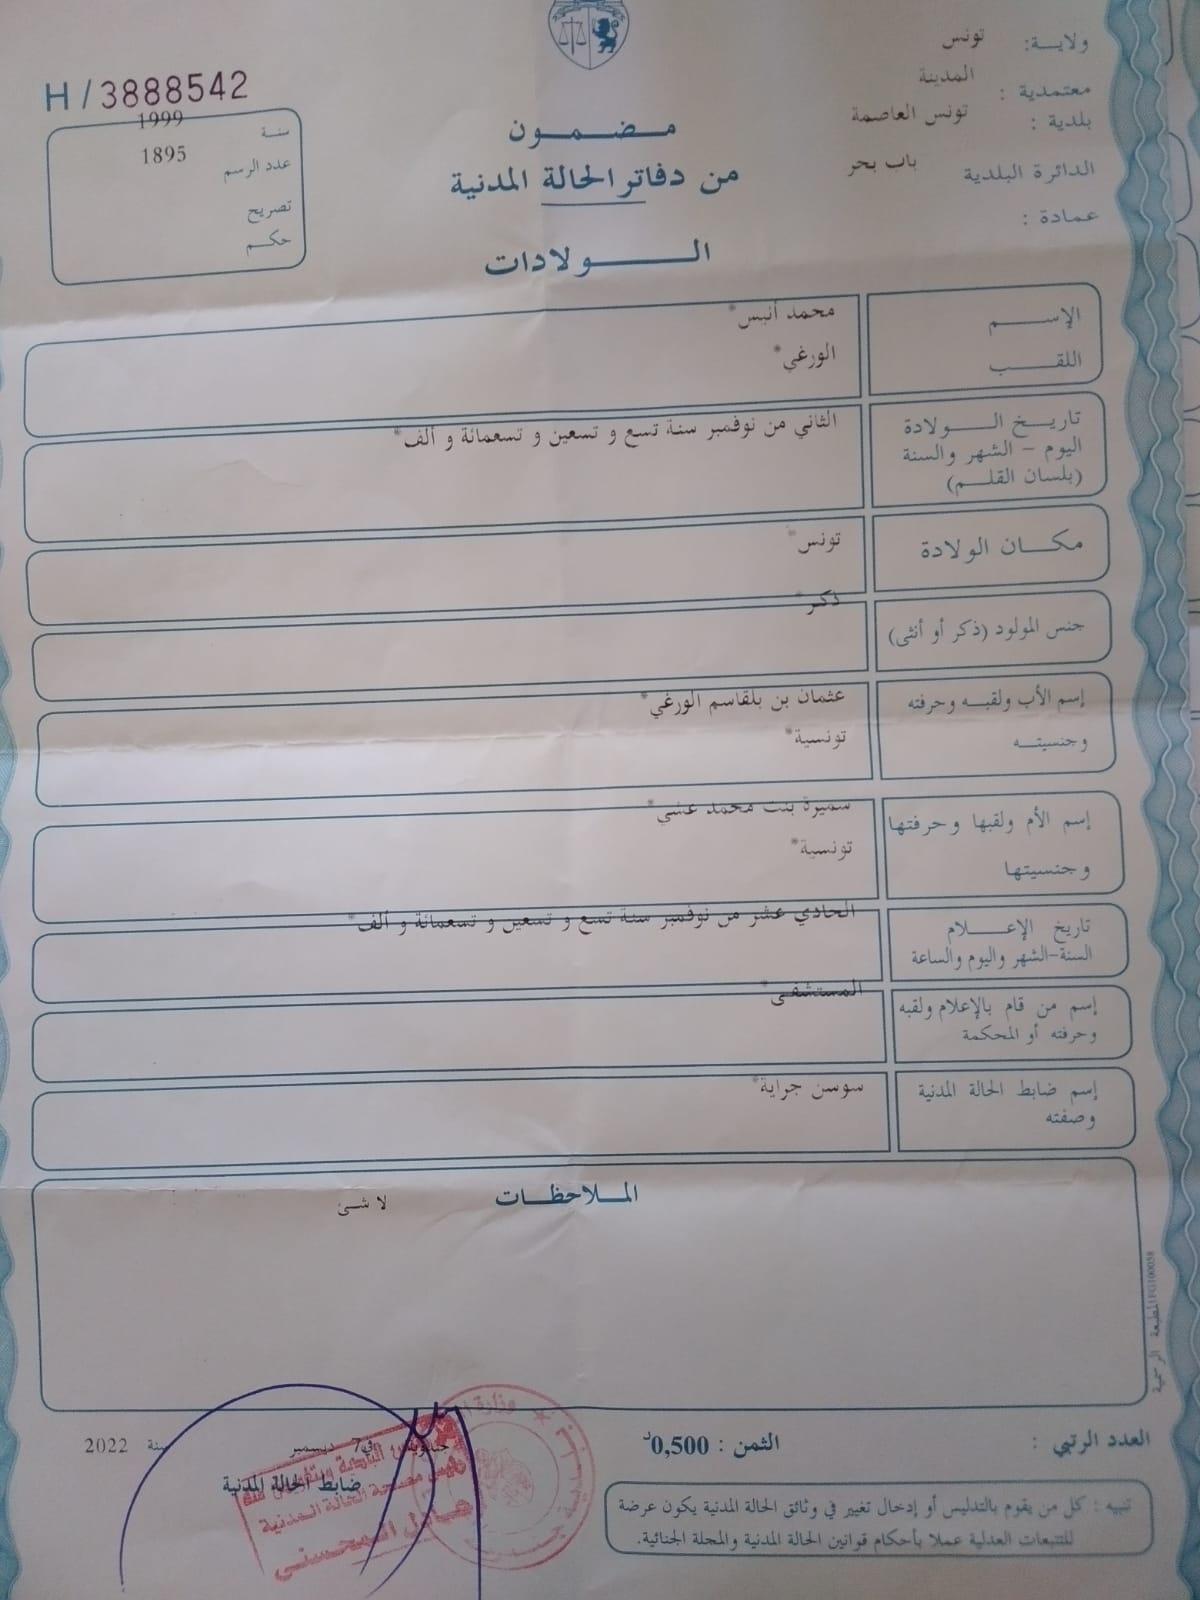 ولاية: تونس
معتمدية : المدينة
بلدية : تونس العاصمة
الدائرة البلدية باب بحر
عمادة :
H/3888542
سنة 1999
عدد الرسم 1895
تصريح
حكم
مضمون
من دفاتر الحالة المدنية
الولادات
الإسم محمد أنيس*
اللقب الورغي*
تاريخ الولادة
اليوم - الشهر والسنة
(بلسان القلم)
الثاني من نوفمبر سنة تسع و تسعين و تسعمائة و ألف*
مكان الولادة تونس*
جنس المولود (ذكر أو أنثى) ذكر*
إسم الأب ولقبه وحرفته عثمان بن بلقاسم الورغي*
وجنسيته تونسية*
إسم الأم ولقبها وحرفتها سميرة بنت محمد عشي*
وجنسيتها تونسية*
تاريخ الإعلام
السنة-الشهر واليوم والساعة
الحادي عشر من نوفمبر سنة تسع و تسعين و تسعمائة و ألف*
إسم من قام بالإعلام ولقبه
وحرفته أو المحكمة
المستشفى*
إسم ضابط الحالة المدنية
وصفته
سوسن جراية*
الملاحظات
لا شئ
العدد الرتبي :
الثمن : 0,500د
في 7 ديسمبر سنة 2022
ضابط الحالة المدنية
مصلحة الحالة المدنية
عادل المحسني
وزارة
تنبيه : كل من يقوم بالتدليس أو إدخال تغيير في وثائق الحالة المدنية يكون عرضة
للتتبعات العدلية عملا بأحكام قوانين الحالة المدنية والمجلة الجنائية.
المطبعة الرسمية